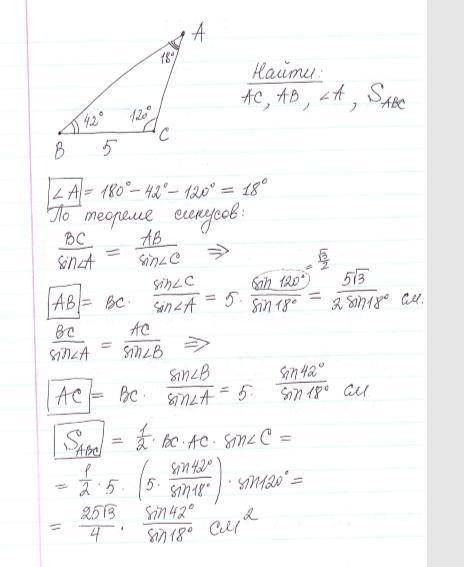 A
18°
Найти:
AC, AB, ∠A, S_ABC
42° 120°
B 5 C
∠A = 180° - 42° - 120° = 18°
По теореме синусов:
BC/sin∠A = AB/sin∠C ⇒
AB = BC · sin∠C/sin∠A = 5 · sin 120°/sin 18° = 5√3/2 sin 18° см.
= √3/2
BC/sin∠A = AC/sin∠B ⇒
AC = BC · sin∠B/sin∠A = 5 · sin 42°/sin 18° см
S_ABC = 1/2 · BC · AC · sin∠C =
= 1/2 · 5 · (5 · sin 42°/sin 18°) · sin 120° =
= 25√3/4 · sin 42°/sin 18° см²